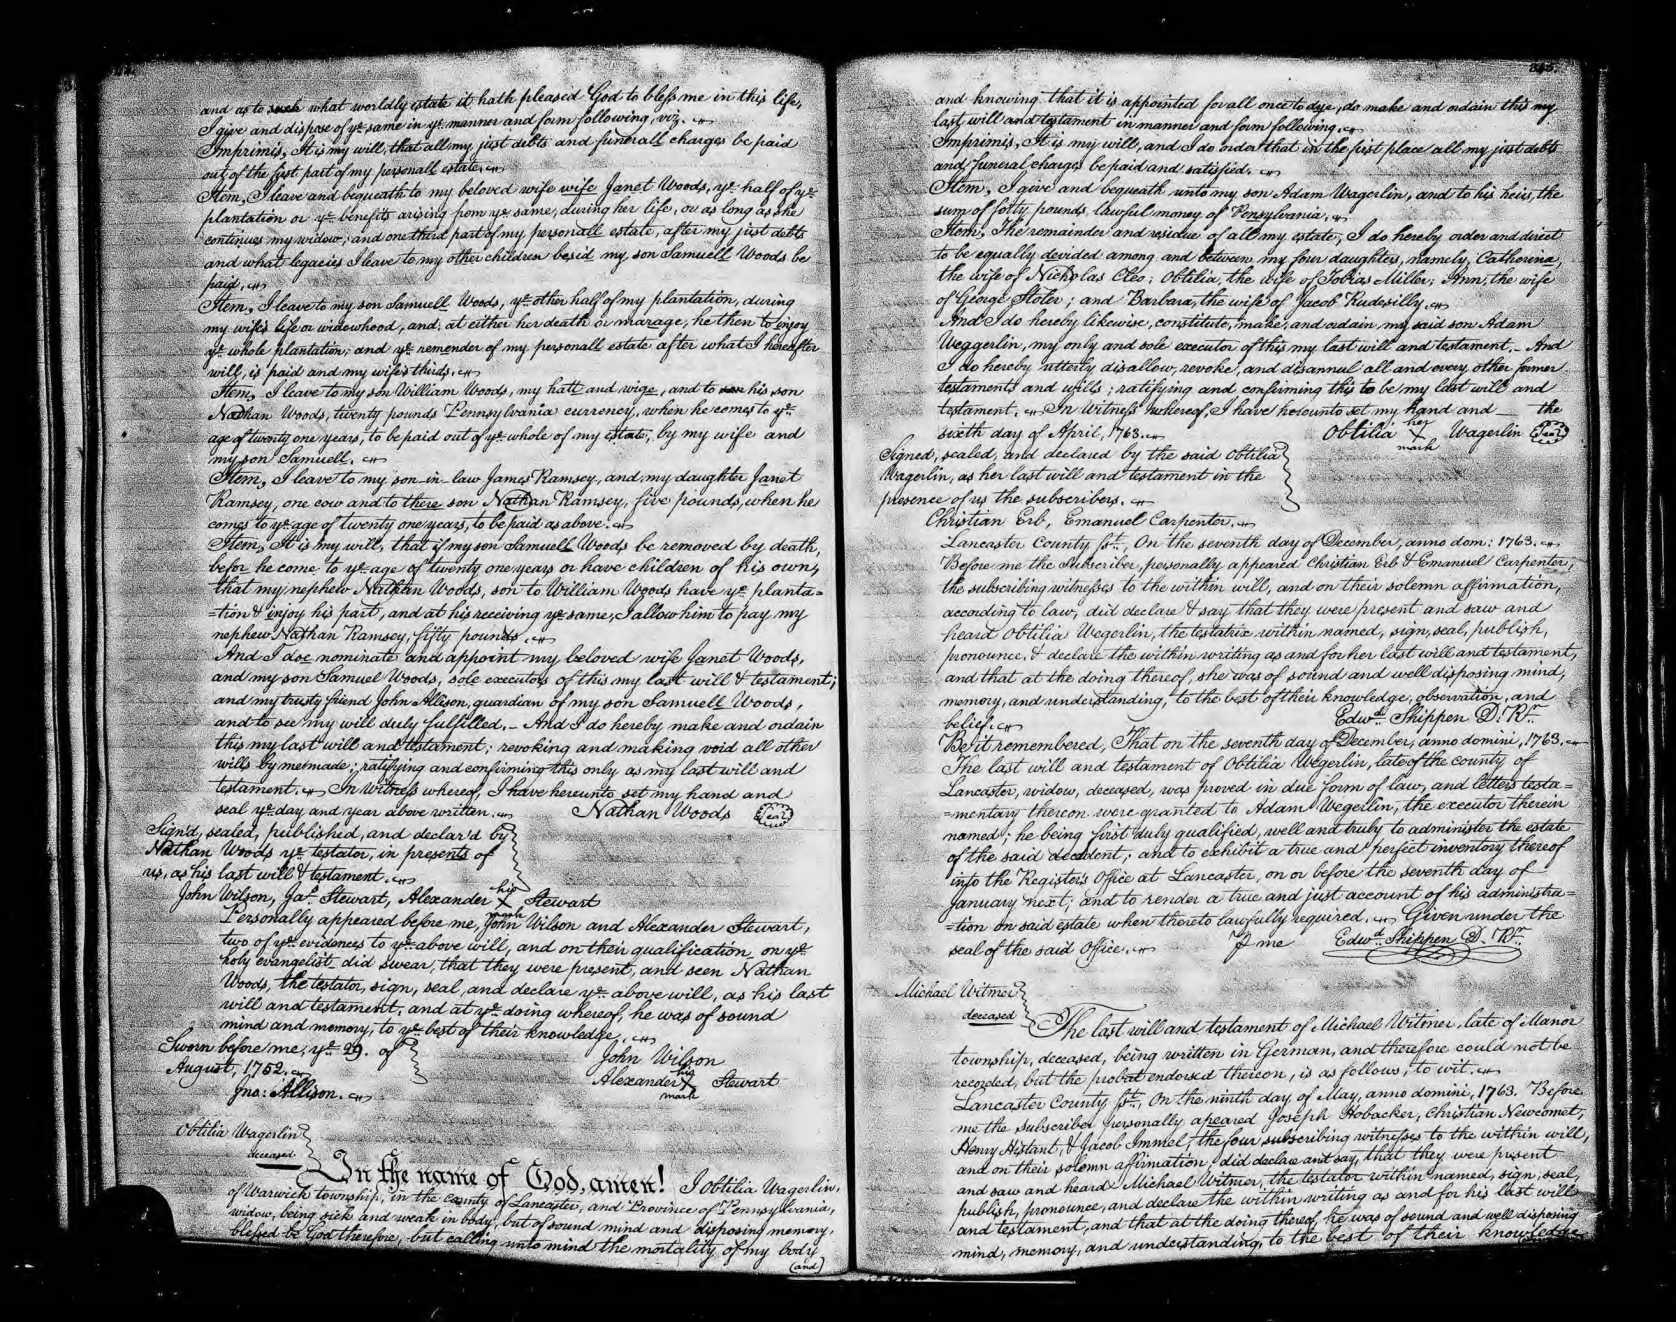 and as to such what worldly estate it hath pleased God to bless me in this life,
I give and dispose of ye same in ye manner and form following, viz.
Imprimis, It is my will, that all my just debts and funerall charges be paid
out of the first part of my personall estate.
Item, I leave and bequeath to my beloved wife wife Janet Woods, ye half of ye
plantation or ye benefits arising from ye same, during her life, or as long as she
continues my widow; and one third part of my personall estate, after my just debts
and what legacies I leave to my other children besid my son Samuell Woods be
paid.
Item, I leave to my son Samuell Woods, ye other half of my plantation, during
my wifes life or widowhood, and, at either her death or marage, he then to enjoy
ye whole plantation; and ye remender of my personall estate after what I hereafter
will, is paid and my wife's thirds.
Item, I leave to my son William Woods, my hatt and wige, and to son his son
Nathan Woods, twenty pounds Pennsylvania currency, when he comes to ye
age of twenty one years, to be paid out of ye whole of my estate, by my wife and
my son Samuell.
Item, I leave to my son-in-law James Ramsey, and my daughter Janet
Ramsey, one cow and to there son Nathan Ramsey, five pounds, when he
comes to ye age of twenty one years, to be paid as above.
Item, It is my will, that if my son Samuell Woods be removed by death,
befor he come to ye age of twenty one years or have children of his own,
that my nephew Nathan Woods, son to William Woods have ye planta=
=tion & injoy his part, and at his receiving ye same, I allow him to pay my
nephew Nathan Ramsey, fifty pounds.
And I doe nominate and appoint my beloved wife Janet Woods,
and my son Samuel Woods, sole executors of this my last will & testament;
and my trusty friend John Allison, guardian of my son Samuell Woods,
and to see my will duly fulfilled,– And I do hereby make and ordain
this my last will and testament; revoking and making void all other
wills by me made; ratifying and confirming this only as my last will and
testament. In Witness whereof, I have hereunto set my hand and
seal ye day and year above written. Nathan Woods Seal
Sign'd, sealed, published, and declar'd by
Nathan Woods ye testator, in presents of
us, as his last will & testament.
his
John Wilson, Jas. Stewart, Alexander X Stewart
mark
Personally appeared before me, John Wilson and Alexander Stewart,
two of ye evidences to ye above will, and on their qualification on ye
holy evangelist did swear, that they were present, and seen Nathan
Woods, the testator, sign, seal, and declare ye above will, as his last
will and testament, and at ye doing whereof, he was of sound
mind and memory, to ye best of their knowledge.
Sworn before me, ye 29. of John Wilson
his
August, 1752. Alexander X Stewart
mark
Jno: Allison.
Obtilia Wagerlin
deceased
In the name of God, amen! I Obtilia Wagerlin,
of Warwick township, in the county of Lancaster, and Province of Pennsylvania,
widow, being sick and weak in body, but of sound mind and disposing memory,
blessed be God therefore, but calling unto mind the mortality of my body
(and)
345.
and knowing that it is appointed for all once to dye, do make and ordain this my
last will and testament in manner and form following.
Imprimis, It is my will, and I do order that in the first place all my just debts
and funeral charges be paid and satisfied.
Item, I give and bequeath unto my son Adam Wagerlin, and to his heirs, the
sum of forty pounds lawful money of Pensylvania.
Item, The remainder and residue of all my estate, I do hereby order and direct
to be equally divided among and between my four daughters, namely, Catherina,
the wife of Nicholas Cleo; Obtilia, the wife of Tobias Miller; Ann, the wife
of George Stoler; and Barbara, the wife of Jacob Rudesilly.
And I do hereby likewise, constitute, make, and ordain my said son Adam
Weggerlin, my only and sole executor of this my last will and testament,– And
I do hereby utterly disallow, revoke, and disannul all and every other former
testaments and wills; ratifying and confirming this to be my last will and
testament. In Witness whereof, I have hereunto set my hand and — the
her
sixth day of April, 1763. Obtilia X Wagerlin Seal
mark
Signed, sealed, and declared by the said Obtilia
Wagerlin, as her last will and testament in the
presence of us the subscribers.
Christian Erb, Emanuel Carpenter.
Lancaster County Sst., On the seventh day of December, anno dom: 1763.
Before me the Subscriber, personally appeared Christian Erb & Emanuel Carpenter,
the subscribing witnesses to the within will, and on their solemn affirmation,
according to law, did declare & say that they were present and saw and
heard Obtilia Wegerlin, the testatrix within named, sign, seal, publish,
pronounce, & declare the within writing as and for her last will and testament,
and that at the doing thereof, she was of sound and well disposing mind,
memory, and understanding, to the best of their knowledge, observation, and
belief. Edwd. Shippen D. Rr.
Be it remembered, That on the seventh day of December, anno domini, 1763.
The last will and testament of Obtilia Wegerlin, late of the county of
Lancaster, widow, deceased, was proved in due form of law, and letters testa=
=mentary thereon were granted to Adam Wegerlin, the executor therein
named; he being first duly qualified, well and truly to administer the estate
of the said decedent; and to exhibit a true and perfect inventory thereof
into the Register's Office at Lancaster, on or before the seventh day of
January next; and to render a true and just account of his administra=
=tion on said estate when thereto lawfully required. Given under the
seal of the said Office. P me Edwd. Shippen D. Rr.
Michael Witmer
deceased
The last will and testament of Michael Witmer, late of Manor
township, deceased, being written in German, and therefore could not be
recorded, but the probat endorsed thereon, is as follows, to wit.
Lancaster County Sst., On the ninth day of May, anno domini, 1763. Before
me the Subscriber personally apeared Joseph Hobacker, Christian Newcomet,
Henry Histant, & Jacob Immel, the four subscribing witnesses to the within will,
and on their solemn affirmation, did declare and say, that they were present
and saw and heard Michael Witmer, the testator within named, sign, seal,
publish, pronounce, and declare the within writing as and for his last will
and testament, and that at the doing thereof, he was of sound and well disposing
mind, memory, and understanding, to the best of their knowledge